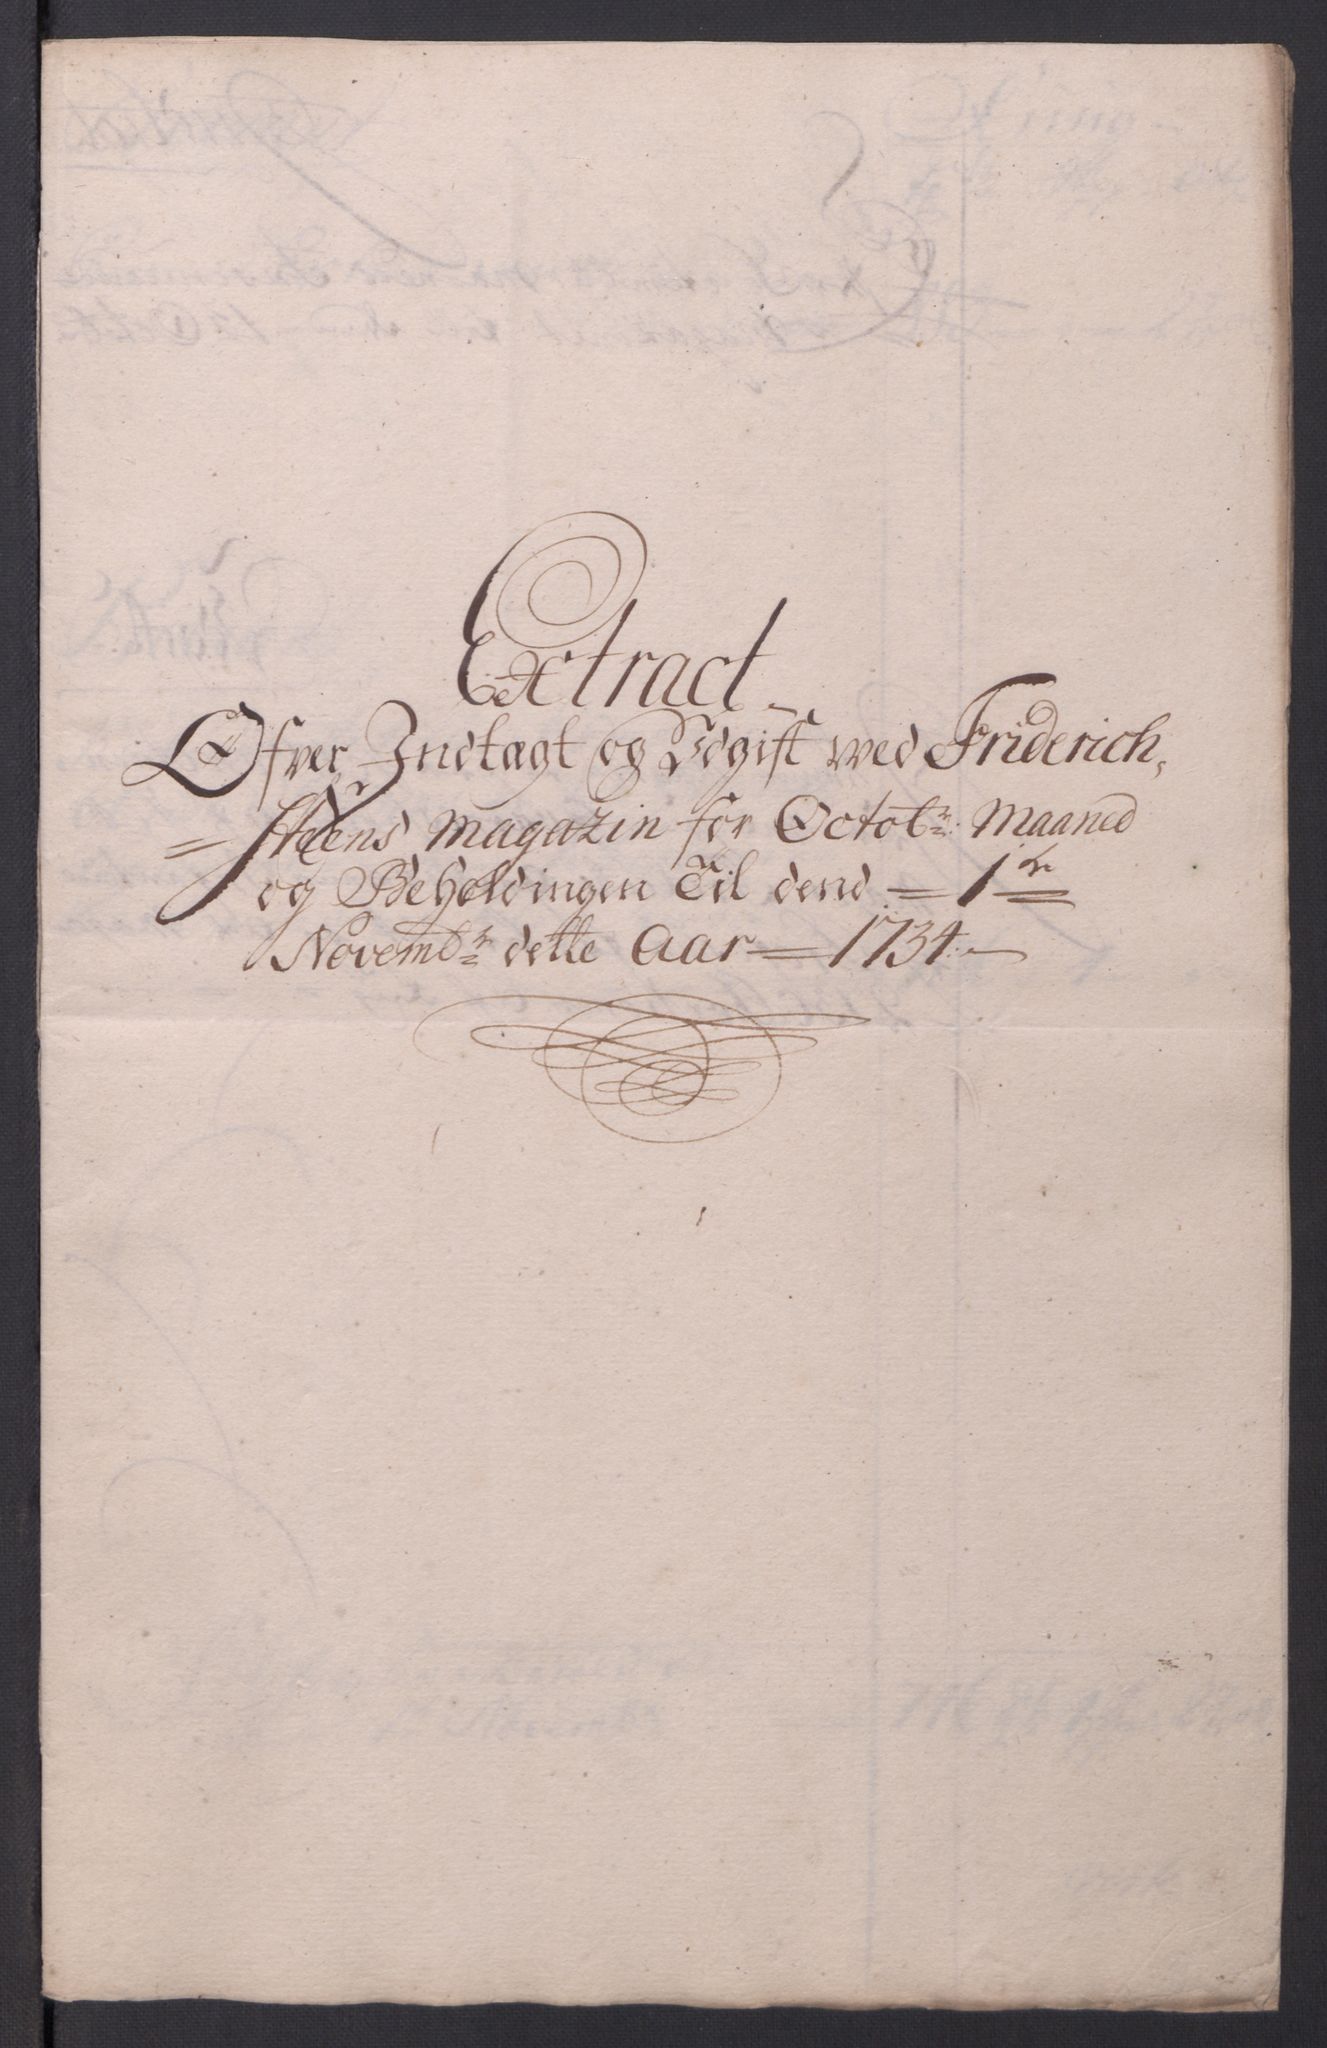 Extract
Ofver Indtægt og Udgift wed Friderich,
= steens Magazin for Octobr: Maaned
og Beholdingen Til dend = 1te
Novembr dette Aar = 1734.